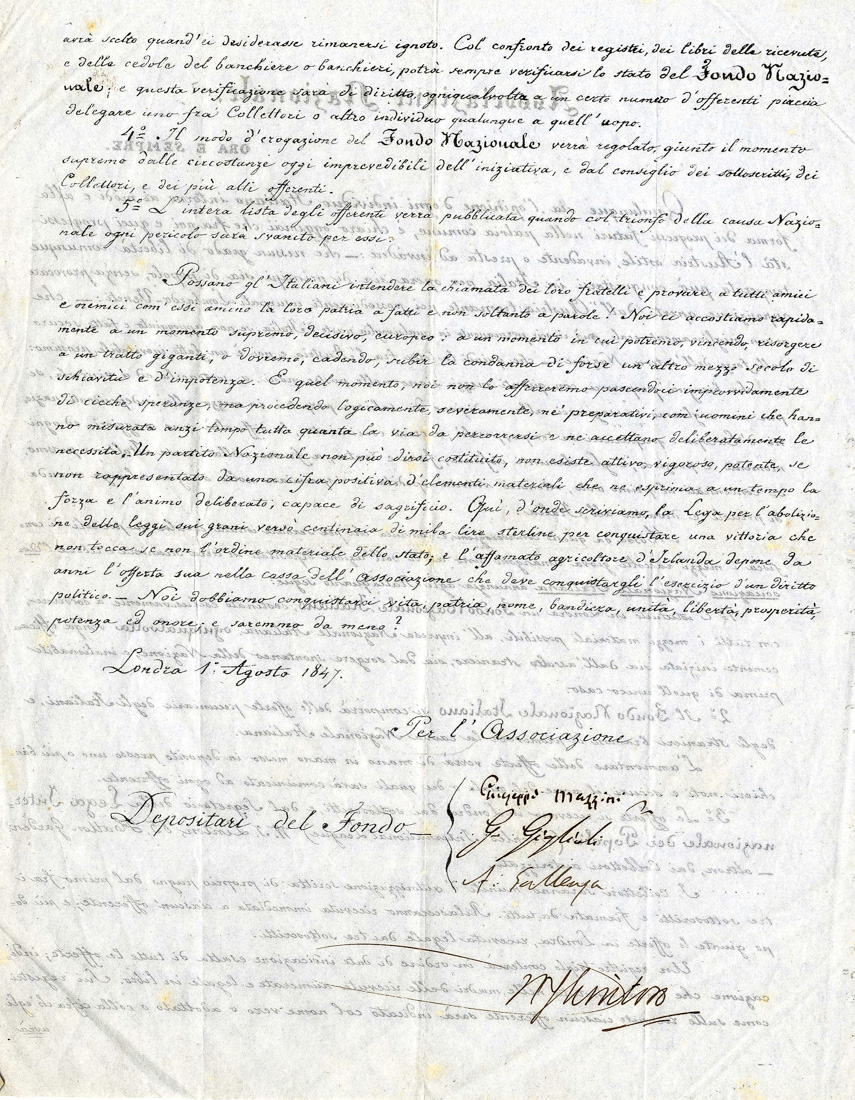 avrà scelto quand'ei desiderasse rimanersi ignoto. Col confronto dei registri, dei libri delle ricevute,
e delle cedole del banchiere o banchieri, potrà sempre verificarsi lo stato del Fondo Nazio=
nale; e questa verificazione sarà di diritto, ogniqualvolta a un certo numero d'offerenti piaccia
delegare uno fra' Collettori o altro individuo qualunque a quell'uopo.
4º Il modo d'erogazione del Fondo Nazionale verrà regolato, giunto il momento
supremo dalle circostanze oggi imprevedibili dell'iniziativa, e dal consiglio dei sottoscritti, dei
Collettori, e dei più alti offerenti.
5º L'intera lista degli offerenti verrà pubblicata quando col trionfo della causa Nazio=
nale ogni pericolo sarà svanito per essi.
Possano gl'Italiani intendere la chiamata dei loro fratelli e provare a tutti amici
e nemici com'essi amino la loro patria a fatti e non soltanto a parole! Noi ci accostiamo rapida=
mente a un momento supremo, decisivo, europeo: a un momento in cui potremo, vincendo, risorgere
a un tratto giganti, o dovremo, cadendo, subir la condanna di forse un'altro mezzo secolo di
schiavitù e d'impotenza. E quel momento, noi non lo affretteremo pascendoci improvvidamente
di cieche speranze, ma procedendo logicamente, severamente, ne' preparativi, com'uomini che han=
no misurata anzi tempo tutta quanta la via da percorrersi e ne accettano deliberatamente le
necessità. Un partito Nazionale non può dirsi costituito, non esiste attivo, vigoroso, potente, se
non rappresentato da una cifra positiva d'elementi materiali che ne esprima a un tempo la
forza e l'animo deliberato, capace di sagrificio. Qui, d'onde scriviamo, la Lega per l'abolizio=
ne delle leggi sui grani versò centinaia di mila lire sterline per conquistare una vittoria che
non tocca se non l'ordine materiale dello stato; e l'affamato agricoltore d'Irlanda depone da
anni l'offerta sua nella cassa dell'Associazione che deve conquistargli l'esercizio d'un diritto
politico. — Noi dobbiamo conquistarci vita, patria, nome, bandiera, unità, libertà, prosperità,
potenza ed onore: e saremmo da meno?
Londra 1º Agosto 1847.
Per l'Associazione
Giuseppe Mazzini
Depositari del Fondo —
G. Giglioli
A. Gallenga